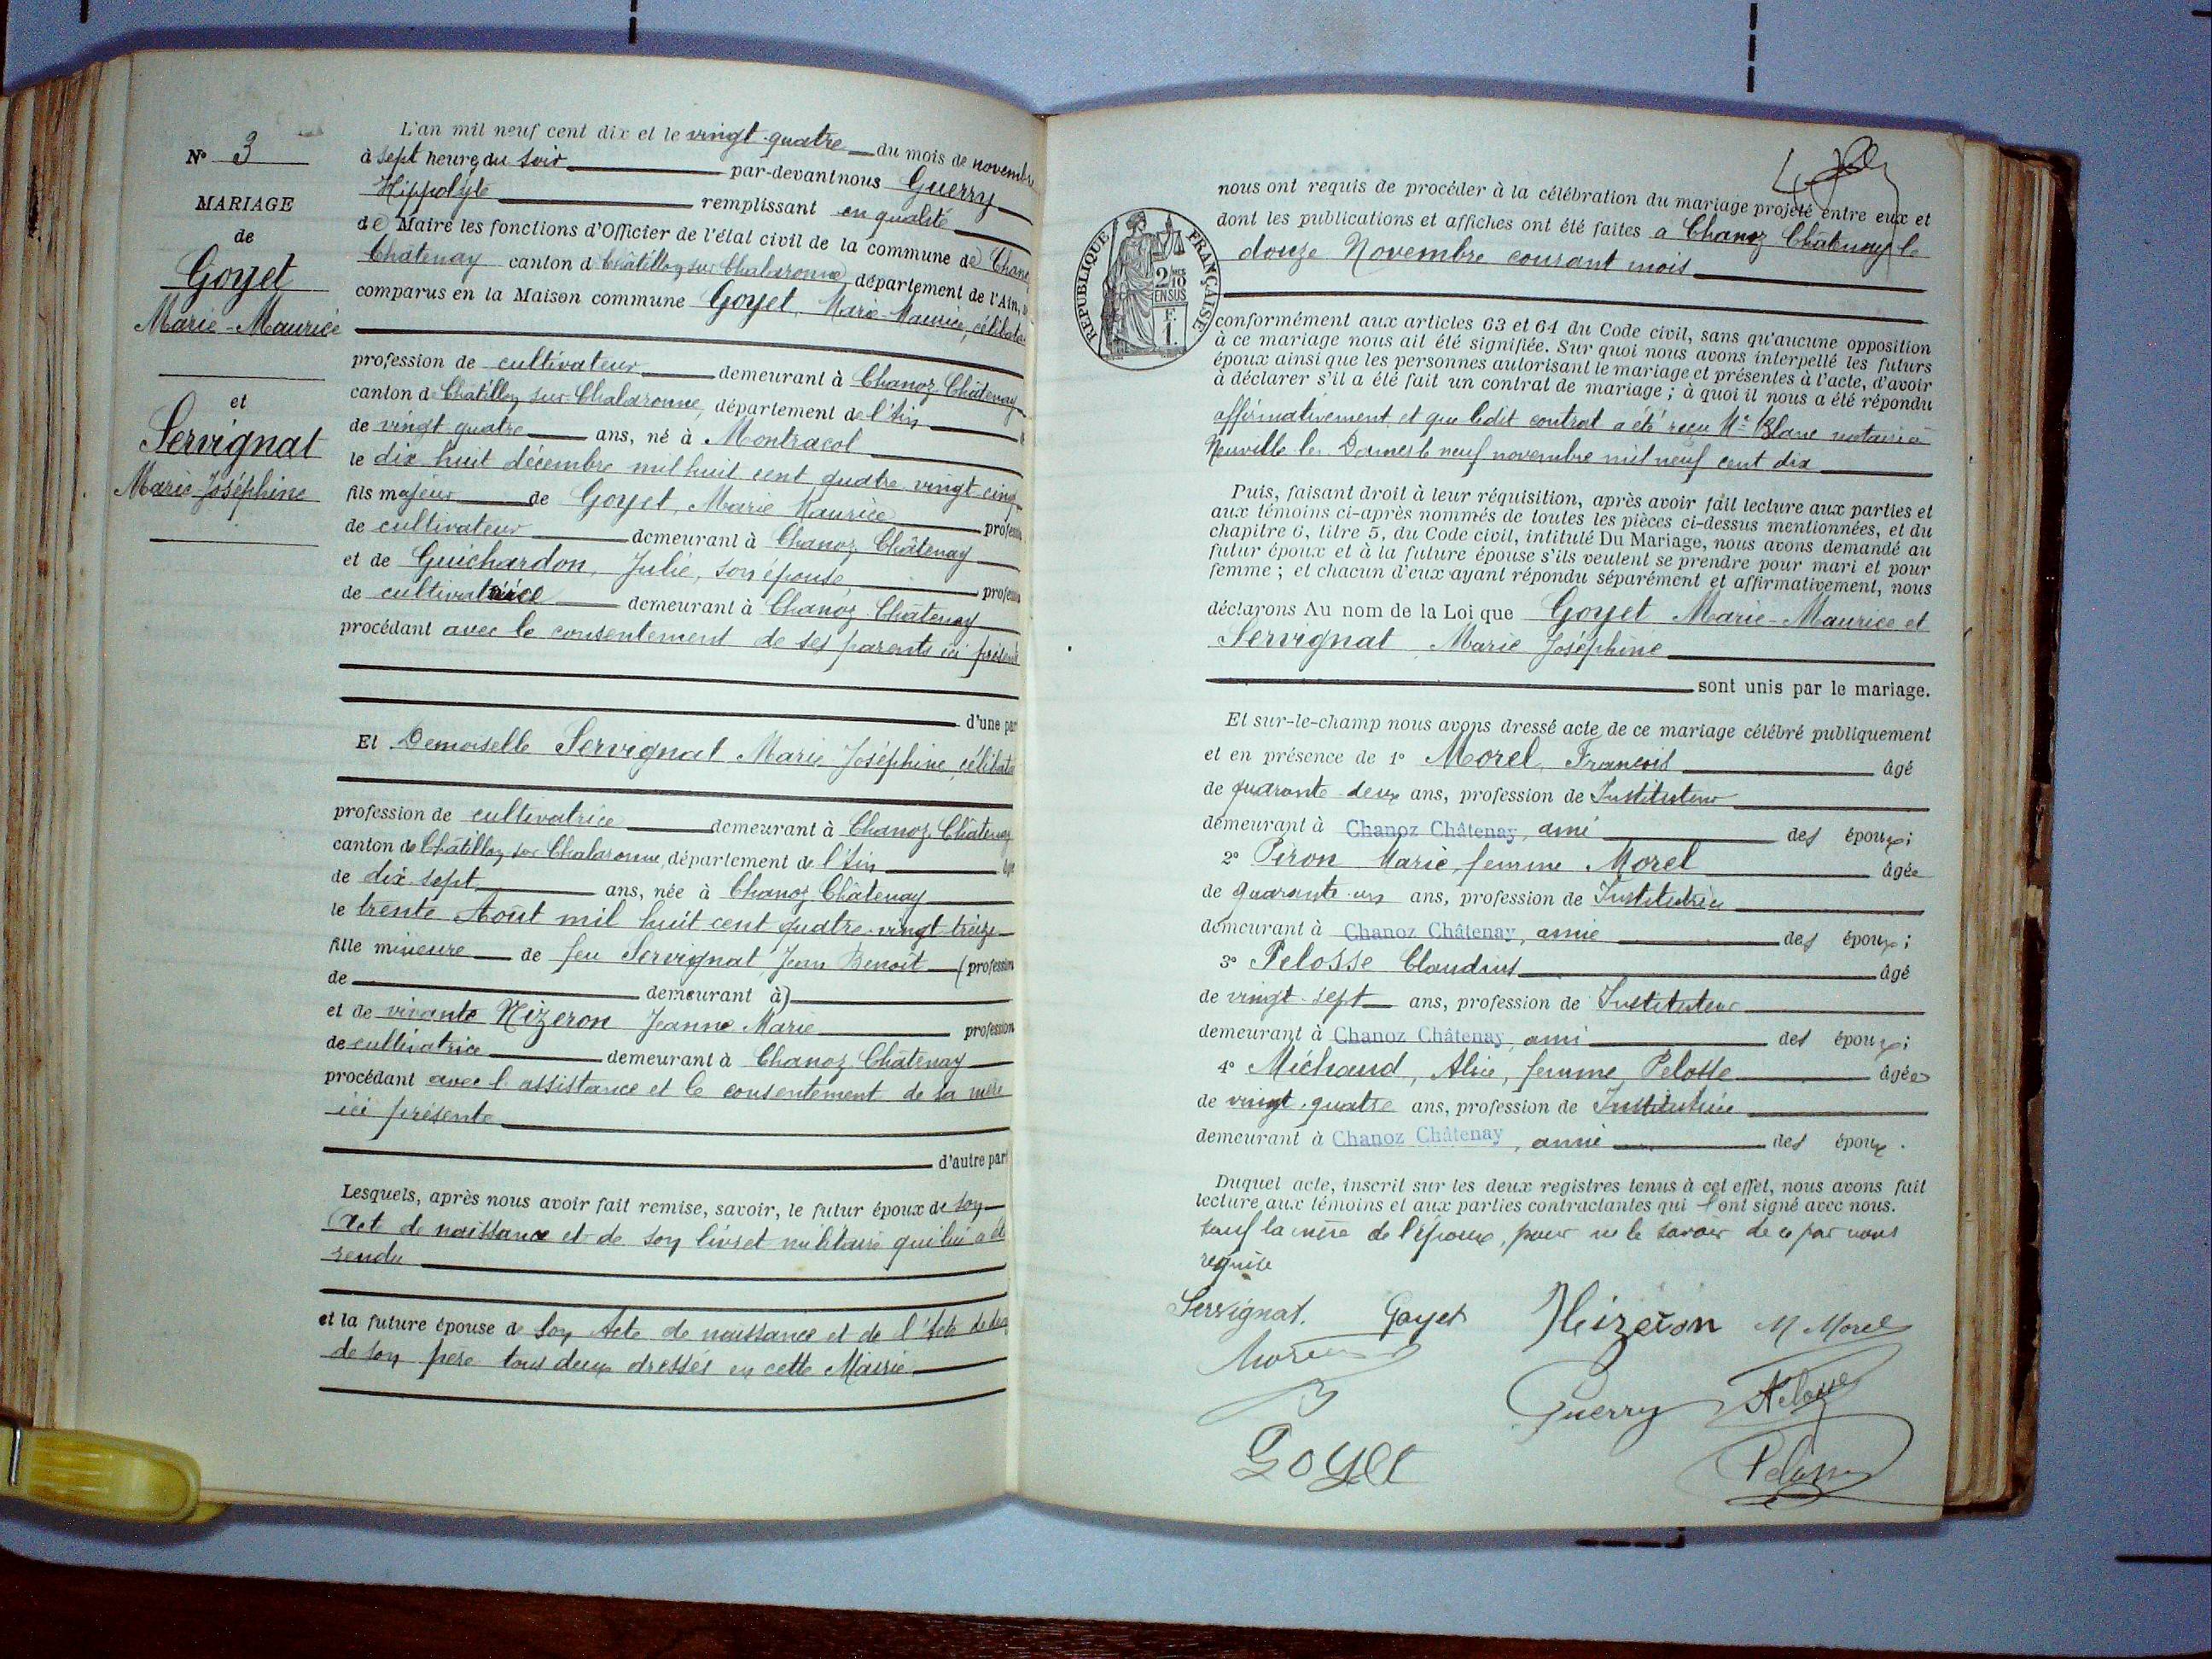 N° 3
MARIAGE
de
Goyet
Marie-Maurice
et
Servignat
Marie Joséphine
L'an mil neuf cent dix et le vingt-quatre du mois de novembre
à sept heure du soir par-devant nous Guerry
Hippolyte remplissant en qualité
de Maire les fonctions d'Officier de l'état civil de la commune de Chanoz
Châtenay canton d Châtillon sur Chalaronne, département de l'Ain,
comparus en la Maison commune Goyet, Marie Maurice, célibataire
profession de cultivateur demeurant à Chanoz Châtenay
canton de Chatillon sur Chalaronne, département de l'Ain
de vingt quatre ans, né à Montracol
le dix huit décembre mil huit cent quatre vingt cinq
fils majeur de Goyet, Marie Maurice profession
de cultivateur demeurant à Chanoz Châtenay
et de Guichardon, Julie, son épouse profession
de cultivatrice demeurant à Chanoz Châtenay
procédant avec le consentement de ses parents ici présents
d'une part
Et Demoiselle Servignat Marie Joséphine, célibataire
profession de cultivatrice demeurant à Chanoz Châtenay
canton de Châtillon sur Chalaronne, département de l'Ain âgée
de dix-sept ans, née à Chanoz Châtenay
le trente Août mil huit cent quatre-vingt-treize
fille mineure de feu Servignat Jean Benoît (profession
de demeurant à)
et de vivante Nizeron Jeanne Marie profession
de cultivatrice demeurant à Chanoz Châtenay
procédant avec l'assistance et le consentement de sa mère
ici présente
d'autre part
Lesquels, après nous avoir fait remise, savoir, le futur époux de son
Acte de naissance et de son livret militaire qui lui a été
rendu
et la future épouse de son Acte de naissance et de l'Acte de décès
de son père tous deux dressés en cette Mairie
nous ont requis de procéder à la célébration du mariage projeté entre eux et
dont les publications et affiches ont été faites à Chanoz Châtenay le
douze Novembre courant mois
RÉPUBLIQUE FRANÇAISE
2/10
EN SUS
F.
1.
conformément aux articles 63 et 64 du Code civil, sans qu'aucune opposition
à ce mariage nous ait été signifiée. Sur quoi nous avons interpellé les futurs
époux ainsi que les personnes autorisant le mariage et présentes à l'acte, d'avoir
à déclarer s'il a été fait un contrat de mariage ; à quoi il nous a été répondu
affirmativement et que ledit contrat a été reçu Me Blanc notaire à
Neuville les Dames le neuf novembre mil neuf cent dix
Puis, faisant droit à leur réquisition, après avoir fait lecture aux parties et
aux témoins ci-après nommés de toutes les pièces ci-dessus mentionnées, et du
chapitre 6, titre 5, du Code civil, intitulé Du Mariage, nous avons demandé au
futur époux et à la future épouse s'ils veulent se prendre pour mari et pour
femme ; et chacun d'eux ayant répondu séparément et affirmativement, nous
déclarons Au nom de la Loi que Goyet Marie-Maurice et
Servignat Marie Joséphine
sont unis par le mariage.
Et sur-le-champ nous avons dressé acte de ce mariage célébré publiquement
et en présence de 1° Morel, François âgé
de quarante deux ans, profession de Instituteur
demeurant à Chanoz Châtenay, ami des époux ;
2° Piron Marie, femme Morel âgée
de quarante un ans, profession de Institutrice
demeurant à Chanoz Châtenay, amie des époux ;
3° Pelosse Claudius âgé
de vingt-sept ans, profession de Instituteur
demeurant à Chanoz Châtenay, ami des époux ;
4° Michaud, Alice, femme Pelosse âgée
de vingt-quatre ans, profession de Institutrice
demeurant à Chanoz Châtenay, amie des époux.
Duquel acte, inscrit sur les deux registres tenus à cet effet, nous avons fait
lecture aux témoins et aux parties contractantes qui l'ont signé avec nous.
sauf la mère de l'époux, pour ne le savoir de ce par nous
requise
Servignat. Goyet Nizeron M Morel
Morel Guerry A Pelosse
Goyet Pelosse